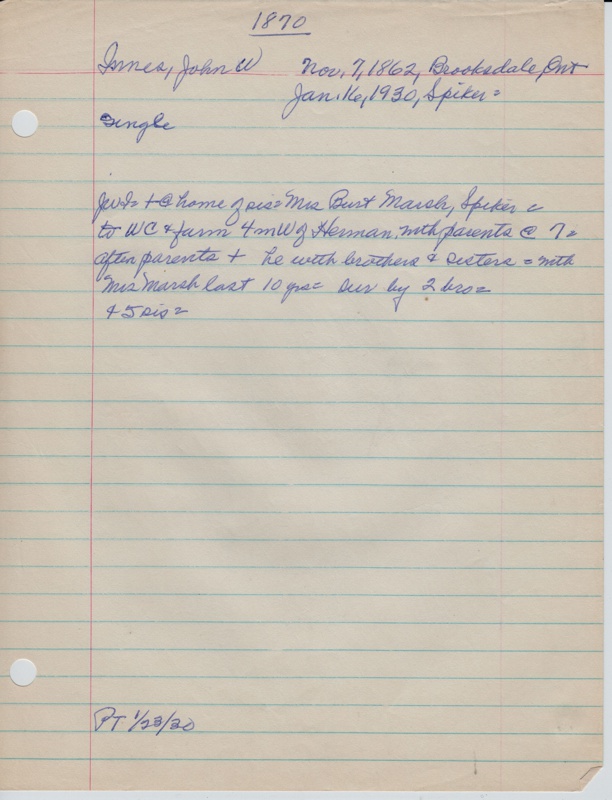 1870
Innes, John W Nov. 7, 1862, Brooksdale, Ont
Jan. 16, 1930, Spiker =
Single
JWI = + @ home of sis = Mrs Burt Marsh, Spiker =
to WC & farm 4 mW of Herman, with parents @ 7 =
after parents + he with brothers & sisters = with
Mrs Marsh last 10 yrs = sur by 2 bro =
+ 5 sis =
PT 1/23/30